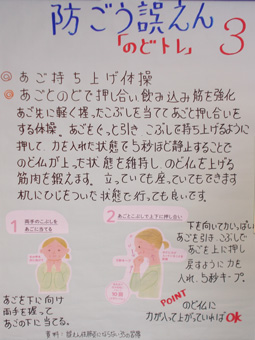 防ごう誤えん
「のどトレ」3
◎あご持ち上げ体操
◎あごとのどで押し合い飲み込み筋を強化
あご先に軽く握ったこぶしを当ててあごと押し合いを
する体操。あごをぐっと引き こぶしで持ち上げるように
押して、力を入れた状態で5秒ほど静止することで
のど仏が上った状態を維持し、のど仏を上げる
筋肉を鍛えます。立っていても座っていてもできます
机にひじをついた状態で行っても良いです。
1 両手のこぶしを
あごに当てる
2 あごとこぶしで上下に押し合い
下を向いて力いっぱい
あごを引き こぶしで
あごを上に押し
戻すように力を
入れ、5秒キープ。
あごを下に向け
両手を握って
あごの下に当てる。
POINT
のど仏に
力が入って上がっていればOK